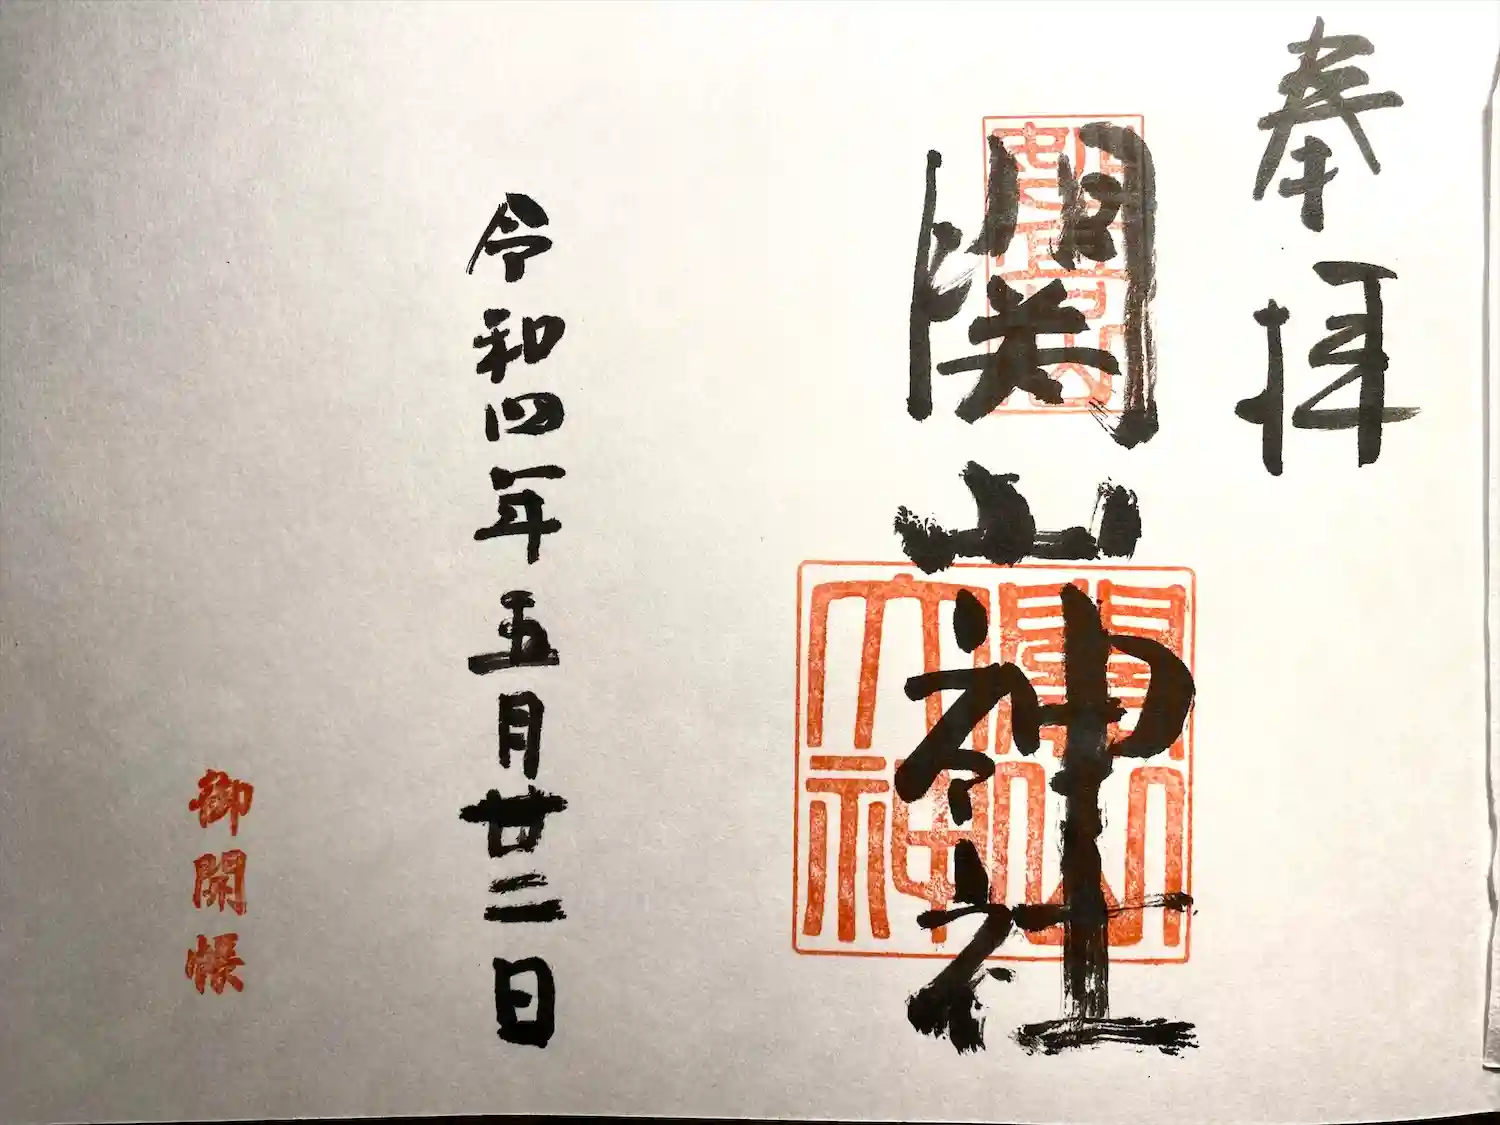 奉拝
関山神社
関山大神
令和四年五月廿二日
御開帳